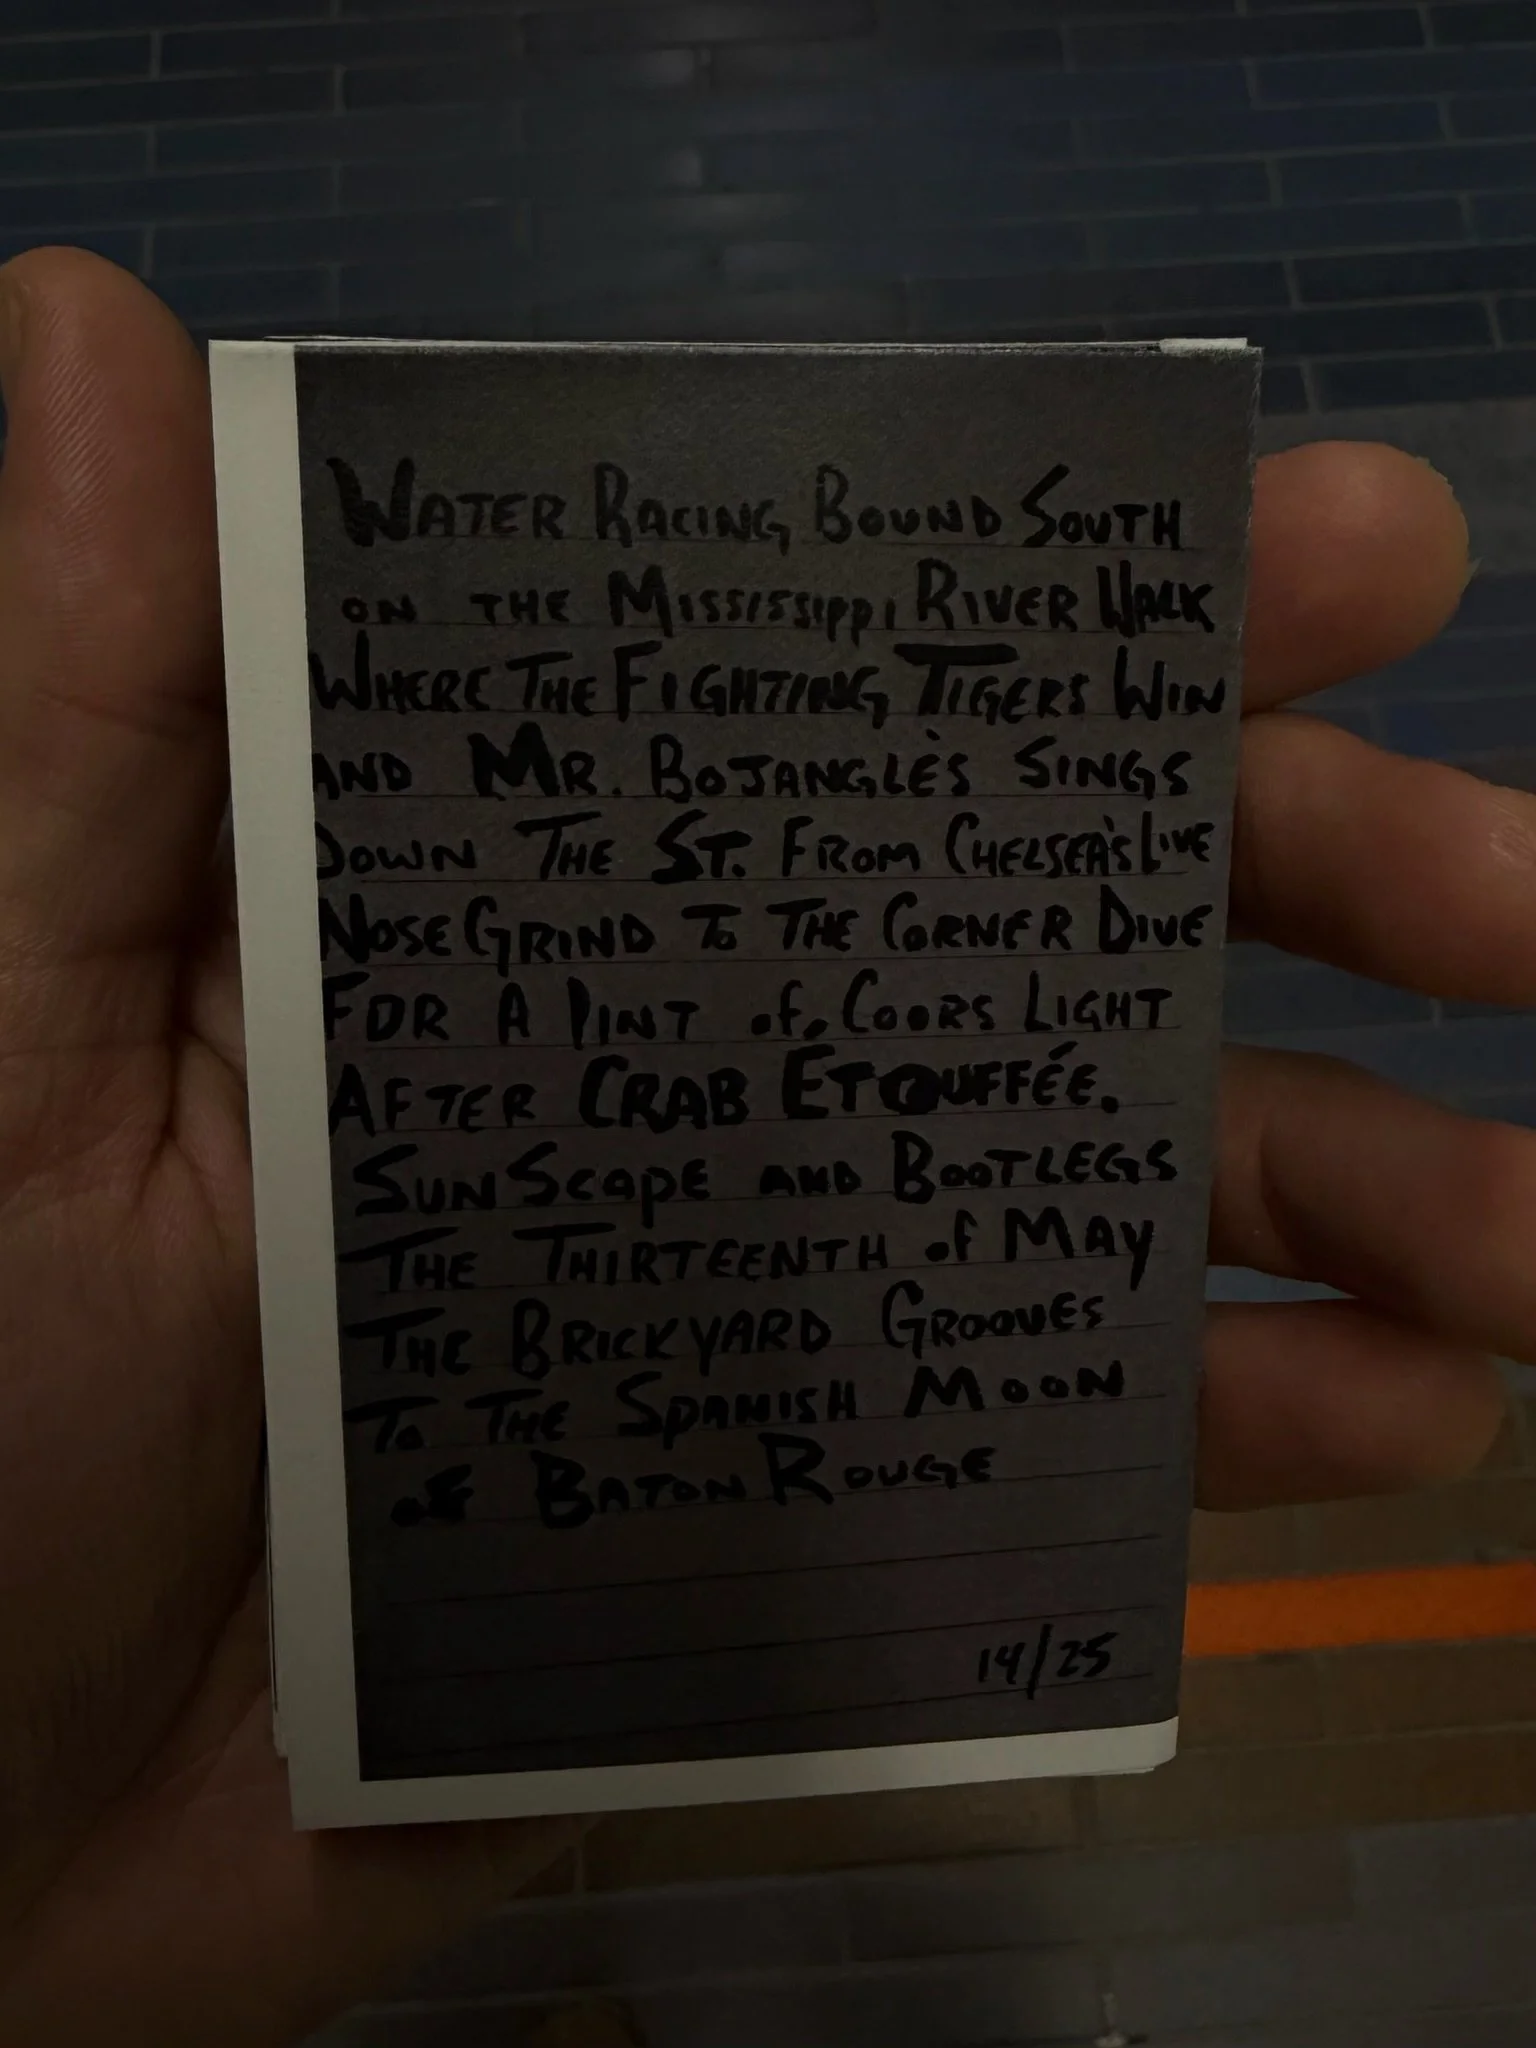 WATER RACING BOUND SOUTH
ON THE MISSISSIPPI RIVER WALK
WHERE THE FIGHTING TIGERS WIN
AND MR. BOJANGLE'S SINGS
DOWN THE ST. FROM CHELSEA'S LIVE
NOSE GRIND TO THE CORNER DIVE
FOR A PINT of COORS LIGHT
AFTER CRAB ETOUFFÉE.
SUNSCAPE AND BOOTLEGS
THE THIRTEENTH of MAY
THE BRICKYARD GROOVES
TO THE SPANISH MOON
of BATON ROUGE
14/25